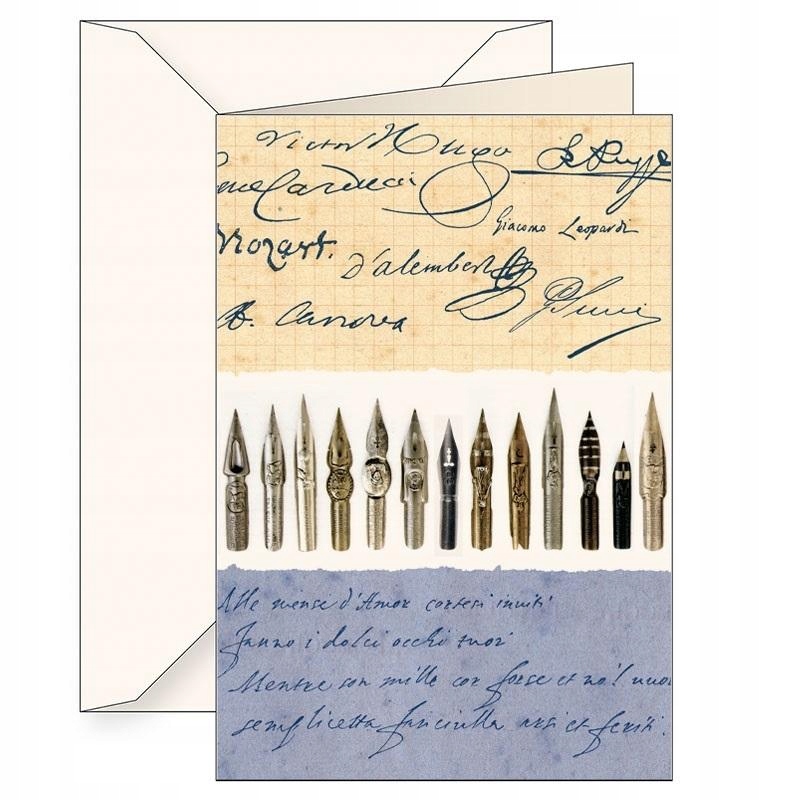 Victor Hugo
Carducci
Giacomo Leopardi
Mozart.
d'alembert
A. Canova
Alle mense d'Amor cortesi inviti
Fanno i dolci occhi tuoi
Mentre son mille cor forse et no'l vuoi
semplicetta fanciulla arsi et feriti.